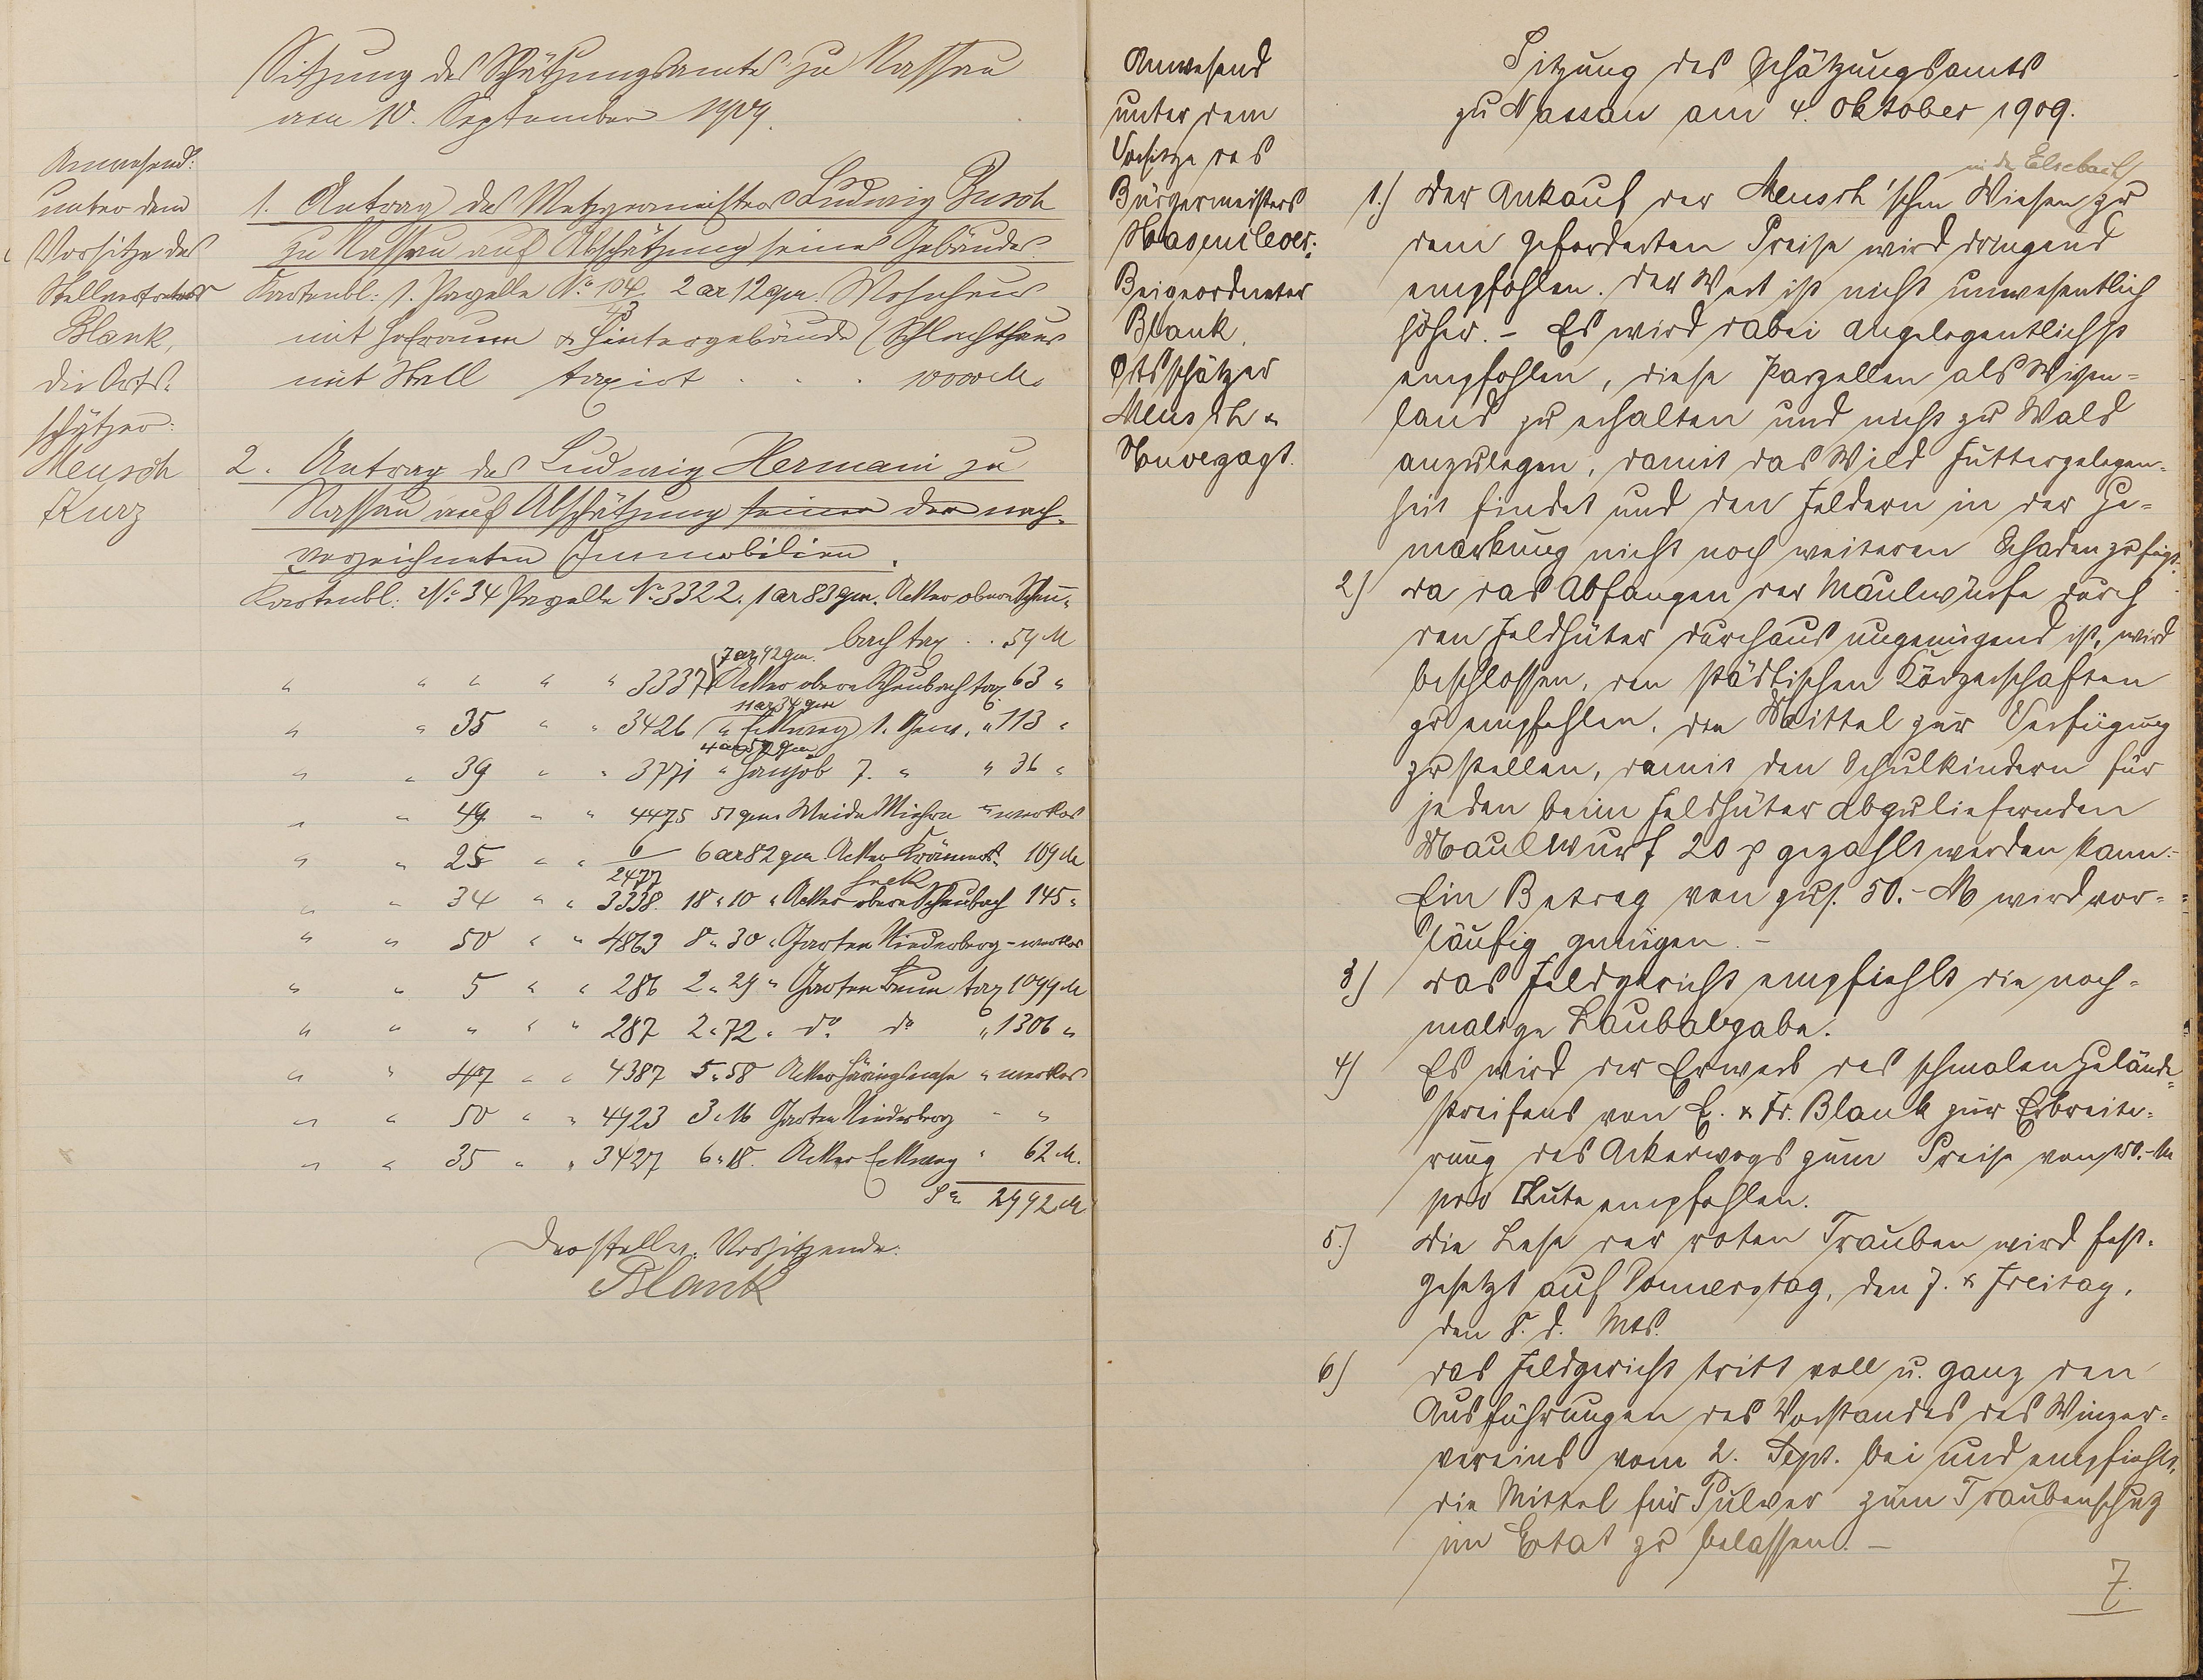 Sitzung des Schätzungsamtes zu Nassau
am 10. September 1909.
Anwesend:
unter dem
Vorsitze des
Stellvertreters
Blank,
die Orts-
schätzer:
Mensch
Kurz
1. Antrag des Metzgermeisters Ludwig Busch
zu Nassau auf Abschätzung seines Gebäudes
Kartenbl: 1. Parzelle No 104/43 2 ar 12 qm. Wohnhaus
mit Hofraum & Hintergebäude (Schlachthaus
mit Stall taxiert . . . 10000 M.
2. Antrag des Ludwig Hermani zu
Nassau auf Abschätzung seiner der nach-
verzeichneten Immobilien.
Kartenbl: No 34 Parzelle No 3322. 1 ar 83 qm. Acker obere Scheu-
bach tax . . 54 M
" " " " " 3337 7 ar 92 qm. Acker obere Scheubach tax 63 "
" " 35 " " 3426 11 ar 34 qm " Eckweg 1. Gew. " 113 "
" " 39 " " 3771 4 ar 52 qm " 7. " " 36 "
" " 49 " " 4475 51 qm Weide Miehrn " wertlos
" " 25 " " 6/2477 6 ar 82 qm Acker Krämers- 109 M
heck
" " 34 " " 3338. 18 " 10 " Acker obere Scheubach 145 "
" " 50 " " 4863 8 " 30 " Garten Niederberg - wertlos
" " 5 " " 286 2 " 29 " Garten tax 1099 M
" " " " " 287 2 " 72 " do do " 1306 "
" " 47 " " 4387 5 " 58 Acker " wertlos
" " 50 " " 4923 3 " 16 Garten Niederberg " "
" " 35 " " 3427 6 " 18. Acker Eckweg " 62 M.
Sa 2992 M
Der stellv. Vorsitzende:
Blank
Anwesend
unter dem
Vorsitze des
Bürgermeisters
Hasenclever:
Beigeordneter
Blank,
Ortsschätzer
Mensch &
Unverzagt.
Sitzung des Schätzungsamts
zu Nassau am 4. Oktober 1909.
in der Elsebach
1.) Der Ankauf der Mensch'schen Wiesen zu
dem geforderten Preise wird dringend
empfohlen. Der Wert ist nicht unwesentlich
höher. - Es wird dabei angelegentlichst
empfohlen, diese Parzellen als Wiesen-
land zu erhalten und nicht zu Wald
anzulegen, damit das Wild Futtergelegen-
heit findet und den Feldern in der Ge-
markung nicht noch weiteren Schaden zufügt.
2) Da das Abfangen der Maulwürfe durch
den Feldhüter durchaus ungenügend ist, wird
beschlossen, den städtischen Körperschaften
zu empfehlen, die Mittel zur Verfügung
zu stellen, damit den Schulkindern für
jeden beim Feldhüter abzuliefernden
Maulwurf 20 P gezahlt werden kann.-
Ein Betrag von zus. 50.- M wird vor-
läufig genügen. -
3) Das Feldgericht empfiehlt die noch-
malige Laubabgabe.
4) Es wird der Erwerb des schmalen Gelände-
streifens von E. & Fr. Blank zur Erbreite-
rung des Ackerwegs zum Preise von 150.- M
pro Rute empfohlen.
5.) Die Lese der roten Trauben wird fest-
gesetzt auf Donnerstag, den 7. & Freitag,
den 8. d. Mts.
6) Das Feldgericht tritt voll u. ganz den
Ausführungen des Vorstandes des Winzer-
vereins vom 2. Sept. bei und empfiehlt,
die Mittel für Pulver zum Traubenschutz
im Etat zu belassen. -
7.